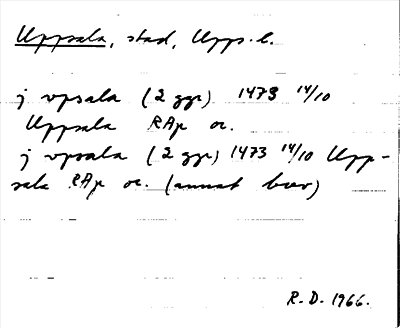 Uppsala, stad, Upps. l.
j vpsala (2 ggr) 1473 14/10
Uppsala RAp or.
j vpsala (2 ggr) 1473 14/10 Upp-
sala RAp or. (annat brev)
R.D. 1966.